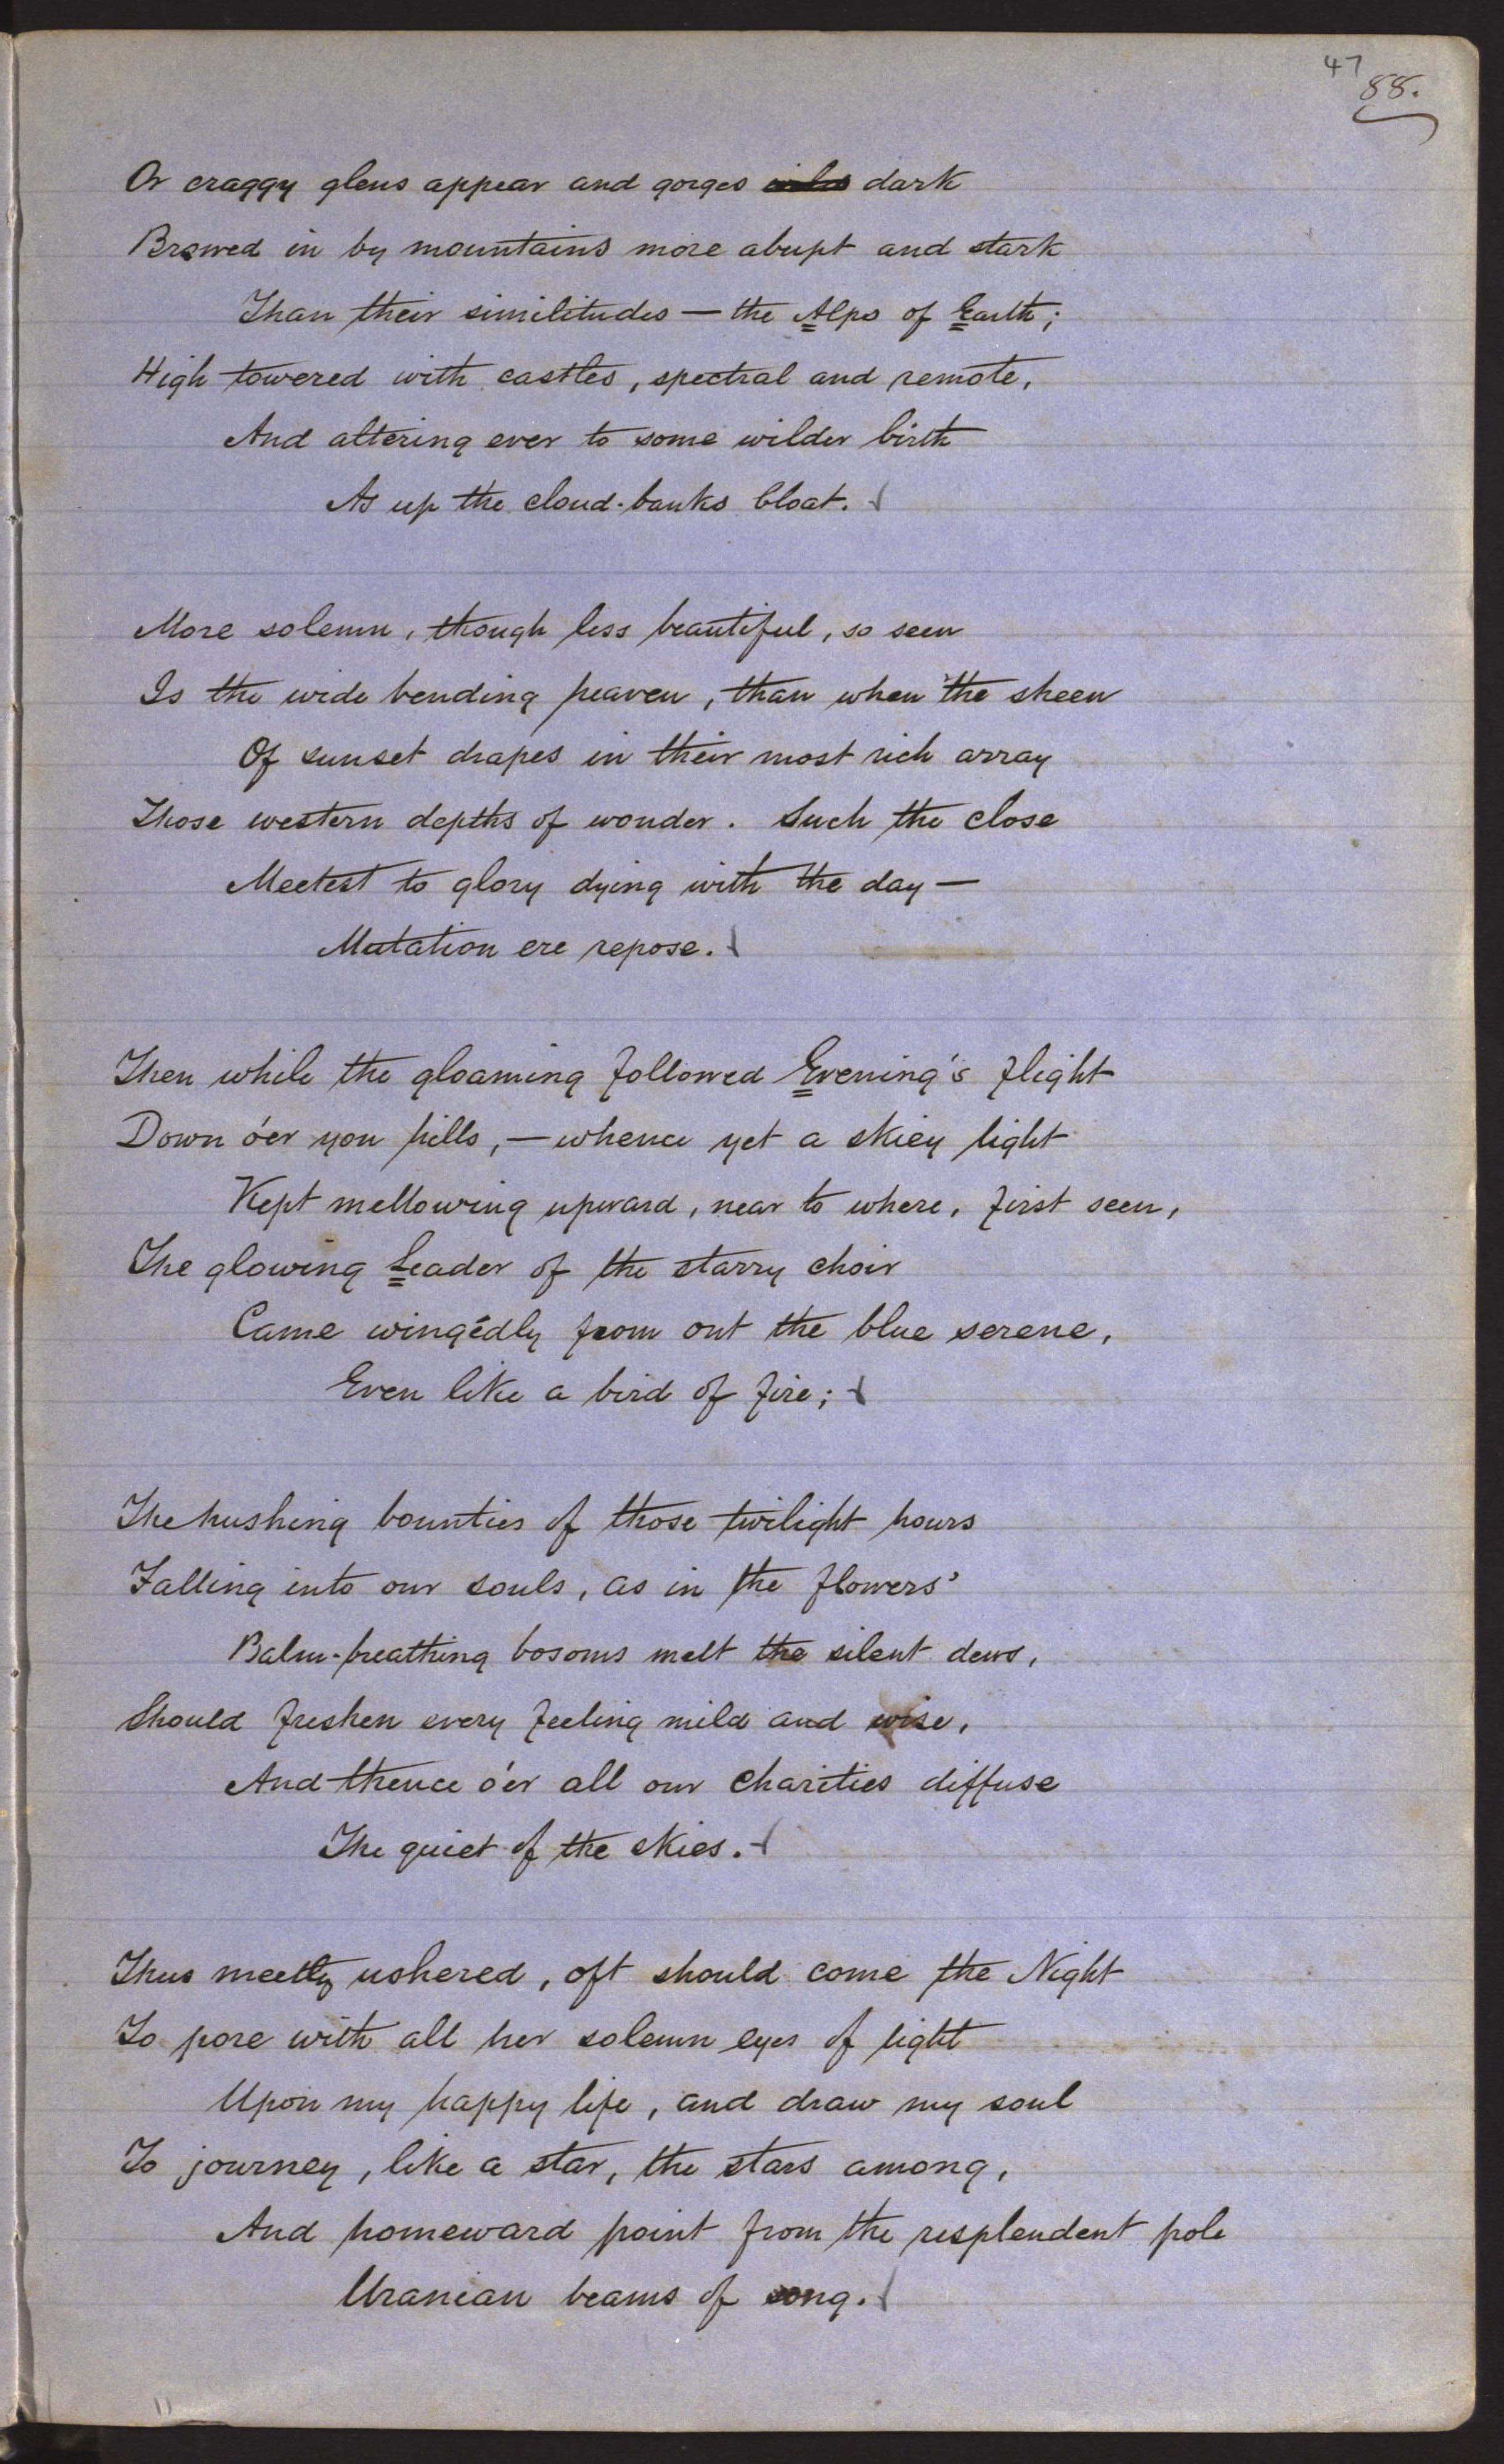 47
88.
Or craggy glens appear and gorges wild dark
Browed in by mountains more abupt and stark
Than their similitudes — the Alps of Earth;
High towered with castles, spectral and remote,
And altering ever to some wilder birth
As up the cloud-banks bloat.
More solemn, though less beautiful, so seen
Is the wide bending heaven, than when the sheen
Of sunset drapes in their most rich array
Those western depths of wonder. Such the close
Meetest to glory dying with the day —
Mutation ere repose.
Then while the gloaming followed Evening's flight
Down o'er yon hills, — whence yet a skiey light
Kept mellowing upward, near to where, first seen,
The glowing Leader of the starry choir
Came wingédly from out the blue serene,
Even like a bird of fire;
The hushing bounties of those twilight hours
Falling into our souls, as in the flowers'
Balm-breathing bosoms melt the silent dews,
Should freshen every feeling mild and wise,
And thence o'er all our charities diffuse
The quiet of the skies.
Thus meetly ushered, oft should come the Night
To pore with all her solemn eyes of light
Upon my happy life, and draw my soul
To journey, like a star, the stars among,
And homeward point from the resplendent pole
Uranian beams of song.